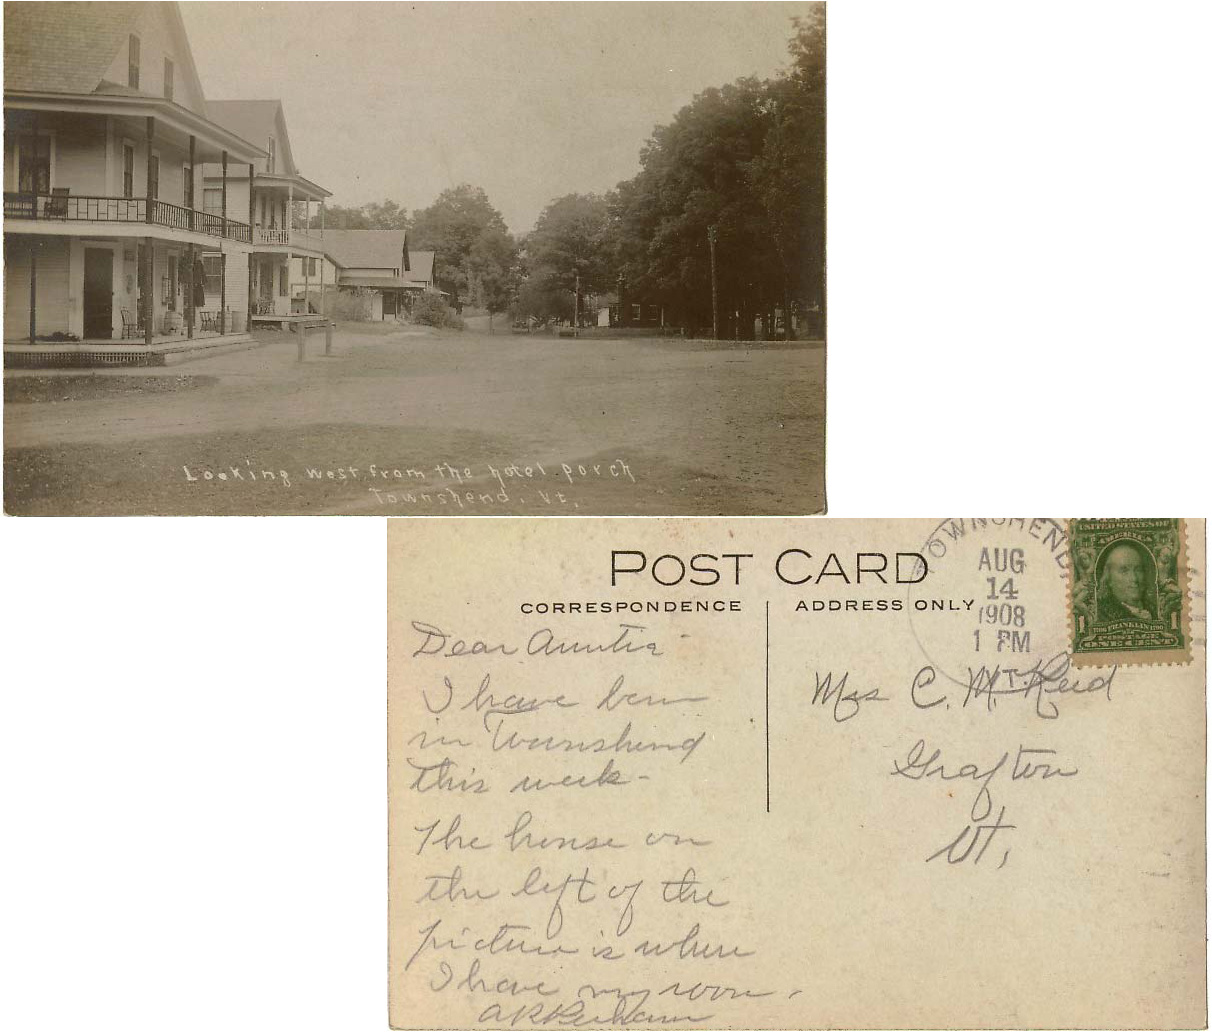 Looking west from the hotel porch
Townshend, Vt.
POST CARD
CORRESPONDENCE
ADDRESS ONLY
TOWNSHEND,
AUG
14
1908
1 PM
VT.
UNITED STATES OF
AMERICA
1 FRANKLIN 1
POSTAGE
ONE CENT
Dear Auntie-
I have been
in Townshend
this week-
The house on
the left of the
picture is where
I have my room.
Mrs C. M. Reid
Grafton
Vt,